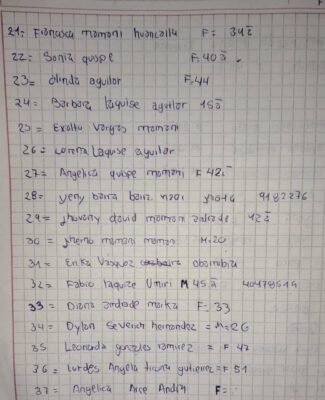 21= Francisca mamani huancollo F= 34 ā
22= Sonia quispe F. 40 ā
23= olinda aguilar F. 44
24= Barbara laquise aguilar 15 ā
25= Exaltu Vargas mamani
26= Lorena laquise aguilar
27= Angelica quispe mamani F 42.
28= yeny 9182276
29= Jhovany david mamani andrade 12 ā
30= mamani mamani M=20
31= Erika Vasquez
32= Fabio laquize Umiri M 45 ā 40478519
33= Diana andrade marka F= 33
34= Dylan Severich hernandez = M=26
35 Leonarda gonzales ramirez = F 47
36= lurdes Angela ticona gutierrez = F 51
37= Angelica Arce Andia F=